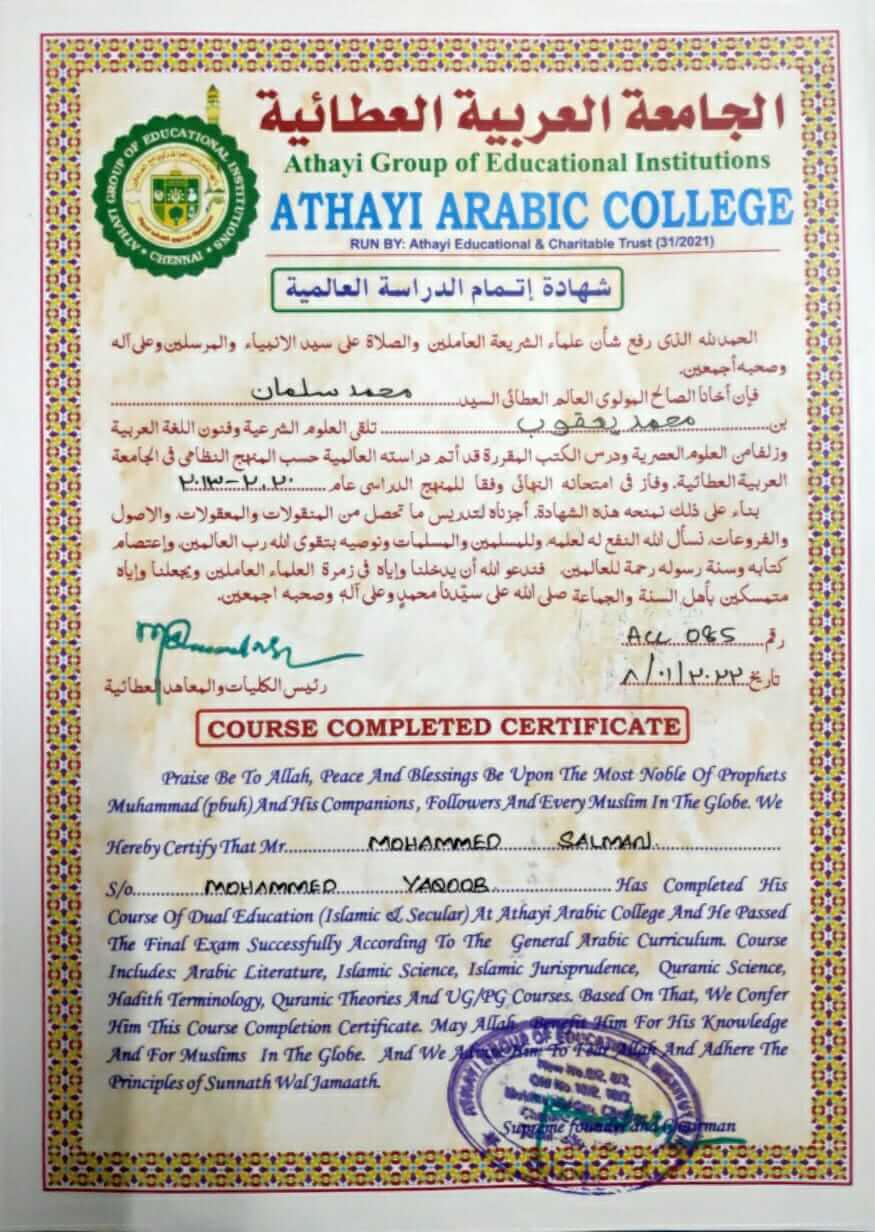 الجامعة العربية العطائية
Athayi Group of Educational Institutions
ATHAYI ARABIC COLLEGE
RUN BY: Athayi Educational & Charitable Trust (31/2021)
ATHAYI GROUP OF EDUCATIONAL INSTITUTIONS
CHENNAI
شهادة إتمام الدراسة العالمية
الحمدلله الذى رفع شأن علماء الشريعة العاملين والصلاة على سيد الانبياء والمرسلين وعلى آله
وصحبه أجمعين.
فإن أخانا الصالح المولوى العالم العطائى السيد محمد سلمان
بن محمد يعقوب تلقى العلوم الشرعية وفنون اللغة العربية
وزلفا من العلوم العصرية ودرس الكتب المقررة قد أتم دراسته العالمية حسب المنهج النظامى فى الجامعة
العربية العطائية. وفاز فى امتحانه النهائى وفقا للمنهج الدراسى عام ٢٠١٣-٢٠٢٠
بناء على ذلك نمنحه هذه الشهادة. أجزناه لتدريس ما تحصل من المنقولات والمعقولات، والاصول
والفروعات، نسأل الله النفع له لعلمه، وللمسلمين والمسلمات ونوصيه بتقوى الله رب العالمين، وإعتصام
كتابه وسنة رسوله رحمة للعالمين. فندعو الله أن يدخلنا وإياه فى زمرة العلماء العاملين ويجعلنا وإياه
متمسكين بأهل السنة والجماعة صلى الله على سيّدنا محمدٍ وعلى آله وصحبه اجمعين.
رقم ACC 085
تاريخ ٨/٠١/٢٠٢٢
رئيس الكليات والمعاهد العطائية
COURSE COMPLETED CERTIFICATE
Praise Be To Allah, Peace And Blessings Be Upon The Most Noble Of Prophets
Muhammad (pbuh) And His Companions, Followers And Every Muslim In The Globe. We
Hereby Certify That Mr. MOHAMMED SALMAN
S/o MOHAMMED YAQOOB Has Completed His
Course Of Dual Education (Islamic & Secular) At Athayi Arabic College And He Passed
The Final Exam Successfully According To The General Arabic Curriculum. Course
Includes: Arabic Literature, Islamic Science, Islamic Jurisprudence, Quranic Science,
Hadith Terminology, Quranic Theories And UG/PG Courses. Based On That, We Confer
Him This Course Completion Certificate. May Allah Benefit Him For His Knowledge
And For Muslims In The Globe. And We Advise Him To Fear Allah And Adhere The
Principles of Sunnath Wal Jamaath.
ATHAYI GROUP OF EDUCATIONAL INSTITUTIONS
Supreme founder and Chairman